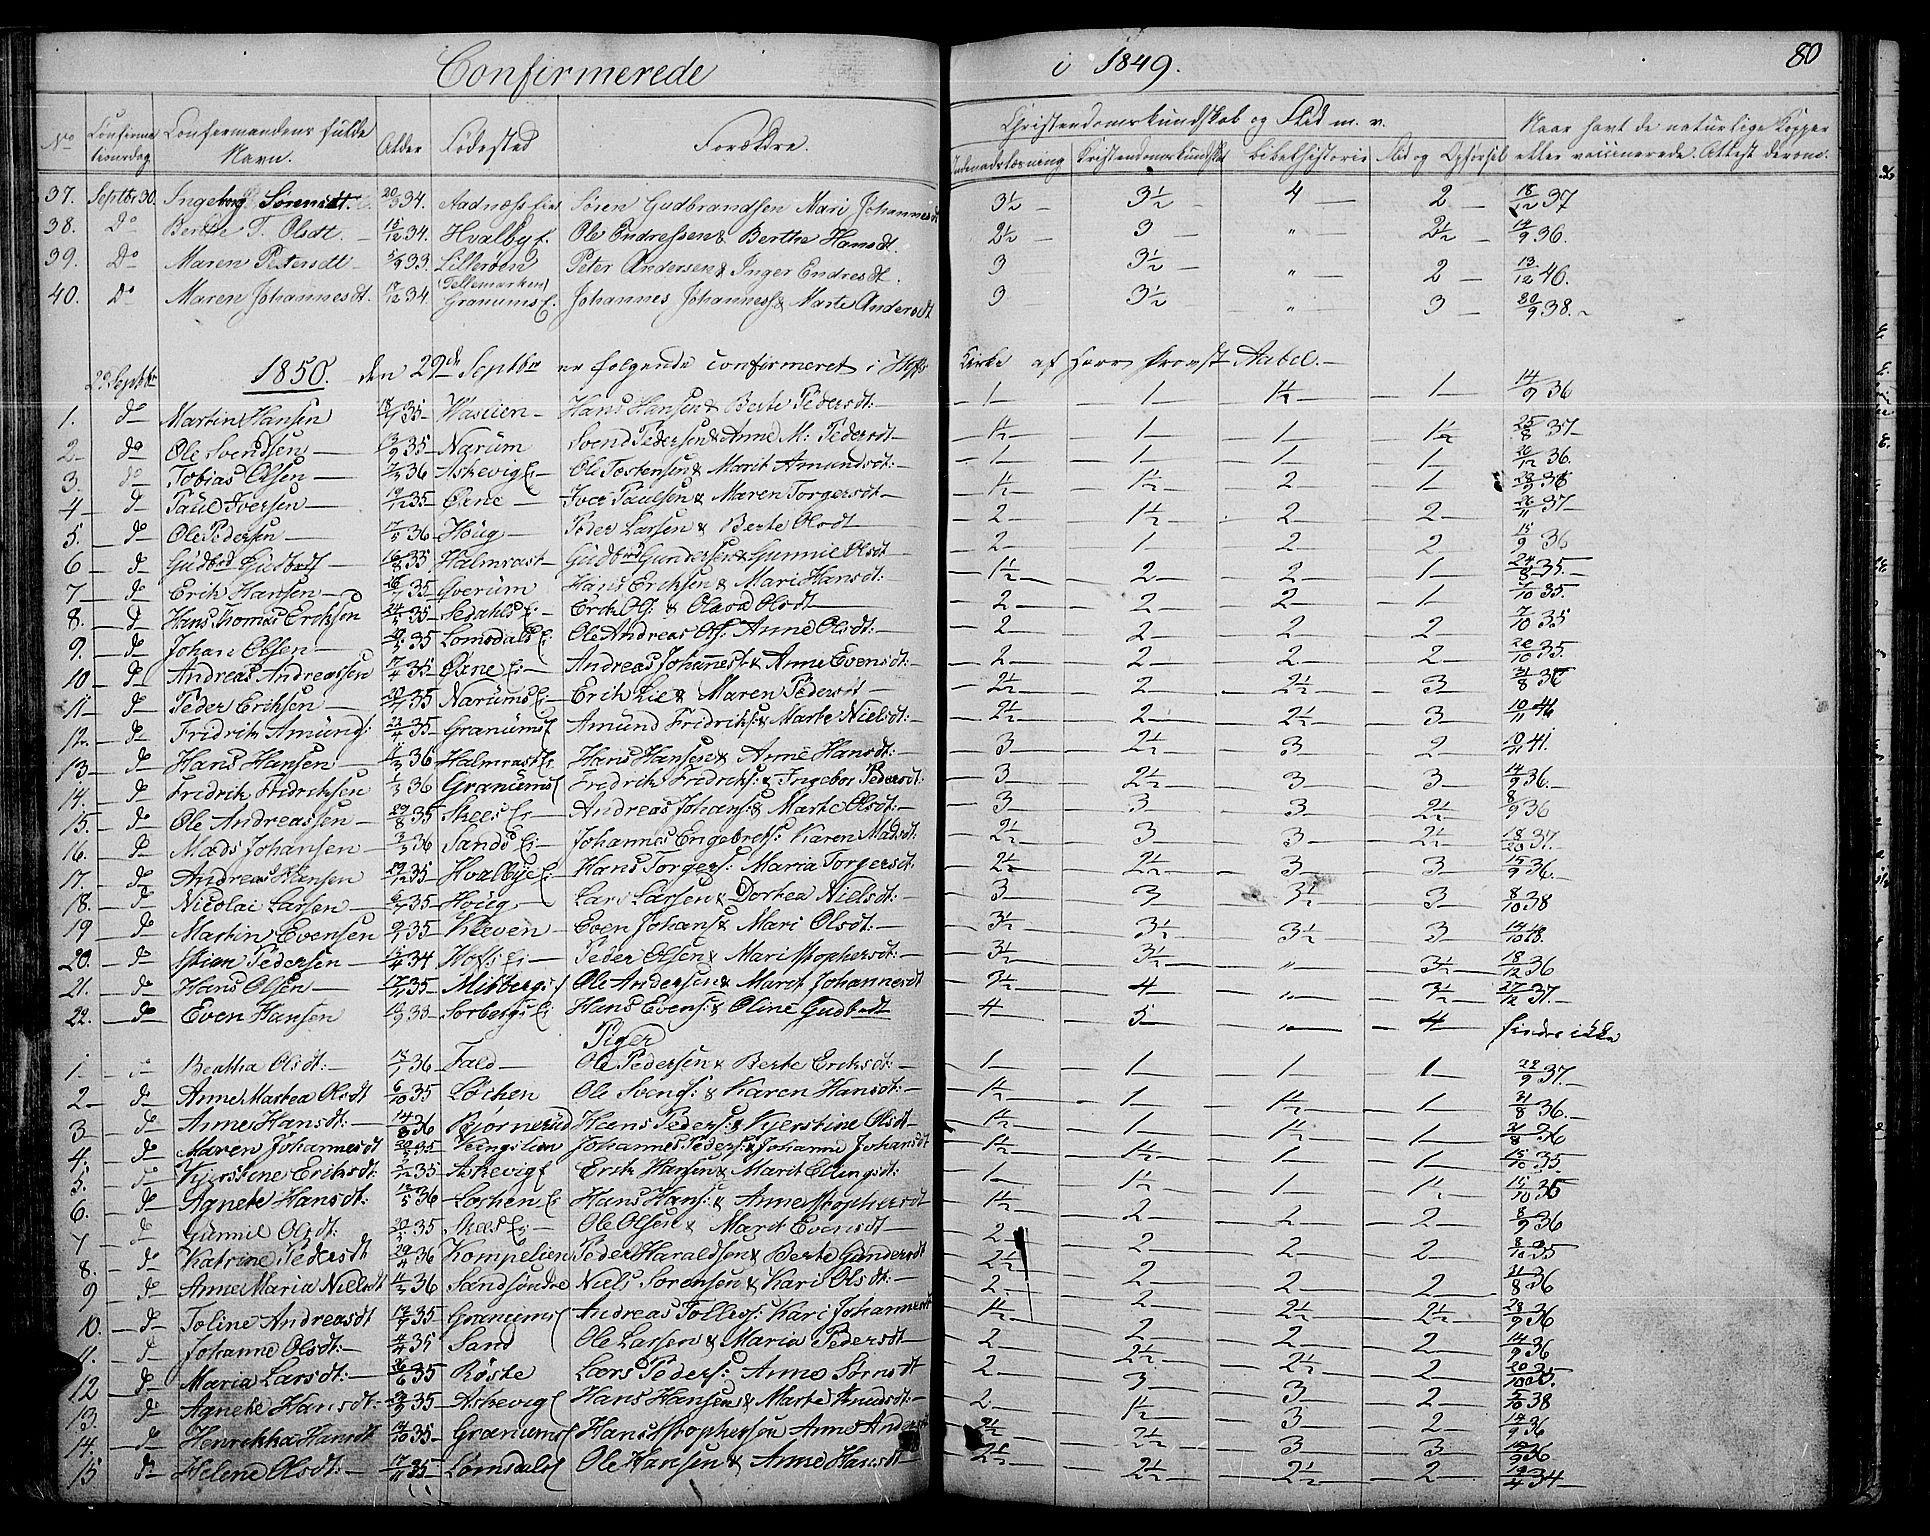 Confirmerede
i 1849.
80
No Confirmationsdag Confirmandens fulde Navn. Alder Fødested Forældre. Christendomskundskab og Flid m. v. Naar havt de naturlige Kopper
Indenadslæsning Kristendomskundskab bibelhistorie Flid og Opførsel eller vaccinerede. Attest derom.
37. Septbr 30. Ingeborg Sørensdt. 20/3 34. Aadnæss Eier Søren Gudbrandsen Mari Johannesdt 3½ 3½ 4 2 18/12 37
38. Do Berthe T. Olsdt. 15/12 34. Hvalbye E. Ole Endressen & Berthe Hansdt 2½ 3 " 2½ 14/9 36.
39. Do Maren Petersdt 5/9 33. Lillerøen (Tellemarken) Peter Andersen & Inger Endresdt. 3 3½ " 2 13/12 46.
40. Do Maren Johannesdt. 17/12 34 Granums E. Johannes Johanness & Marte Andersdt 3 3½ " 3 20/9 38.
29 Septbr 1850. den 29de Septbr er følgende confirmeret i Hoffs Kirke af Herr Provst Aabel.
1. do Martin Hansen 18/9 35 Waslien Hans Hansen & Berte Pedersdt: 1 1 1½ 1 14/9 36
2. do Ole Svendsen 13/9 35 Narum Svend Pedersen & Anne M: Pedersdt 1½ 1 1 1½ 25/8 37
3. do Tobias Olsen 7/2 36 Askevig E: Ole Torstensen & Marit Amundsdt: 1 1 1 1 20/12 36.
4 do Paul Iversen 19/12 35 Øvne Iver Paulsen & Maren Torgersdt 1½ 1½ 2 1
5. do Ole Pedersen 17/5 36 Houg Peder Larsen & Berte Olsdt 2 1½ 2 2 26/11 37
6 do Gudbrd Gudbrdt 16/8 35 Halmrast Gudbrd Gundersen & Gunnil Olsdt 2 1 2 2 15/9 36
7 do Erik Hansen 35 Gverum Hans Eriksen & Mari Hansdt: 1½ 2 2 1 24/8 35.
8. do Hans Thomas Eriksen 24/5 35 Sedahls E: Erik Ols: & Olava Olsdt 2 2 2 1 7/10 35.
9. do Johan Olsen 35 Lomsdals E: Ole Andreas Ols: Anne Olsdt: 2 2 2 2 7/10 35
10 do Andreas Andreassen 17/4 35 Øvne E: Andreas Johannest & Anne Evensdt: 2 2 2 2 20/10 35.
11 do Peder Eriksen 20/7 35 Narums E: Erik Lie & Maren Pedersdt 2½ 2 2½ 3 31/8 36
12. do Fridrik Amunds: 22/4 35 Granums E Amund Fridriks: & Marte Nielsdt: 2½ 2 2½ 3 10/11 44
13. do Hans Hansen 36 Halmrast E: Hans Hansen & Anne Hansdt: 3 2½ 3 2 10/11 41.
14. do Fridrik Fridriksen 1/3 36 Granums E Fredrik Fridriks: & Ingebor Pedersdt: 3 2½ 3 3 14/9 36.
15. do Ole Andreassen 29/8 35 Skees E: Andreas Johans: & Marte Olsdt: 3 3 3 2½ 8/9 36
16. do Mads Johansen 3/3 36 Sands E: Johannes Engebrets: Karen Madsdt: 2½ 3 3 2½ 18/20 37.
17. do Andreas Hansen 35 Hvalbye E: Hans Torgers: Maria Torgersdt. 2½ 2½ 3 3 15/9 36.
18. do Nicolai Larsen 35 Houg Lars Larsen & Dortea Nielsdt: 3 3 3½ 3 8/10 38
19 do Martin Evensen 9/7 35 Kleven Even Johans & Mari Olsdt: 3½ 3½ 3½ 3
20. do Pedersen 34 Hoffs E: Peder Olsen & Mari Stophersdt: 3½ 3½ " 3½ 18/12 36
21. do Hans Olsen 35 Mikbergs E Ole Andersen & Marit Johannesdt 3½ 4 " 3½ 27/12 37.
22. do Even Hansen 33 Sorbergs E: Hans Evens: & Oline Gudbrdt 4 5 " 4 findes ikke
Piger
1. Beatha Olsdt: 18/1 36 Fald Ole Pedersen & Berte Eriksdt: 1 1 1 1 22/9 37.
2 do Anne Martea Olsdt 6/10 35 Lochen Ole Svens: & Karen Hansdt: 1½ 1 1½ 1 31/8 36.
3 do Anne Hansdt: 14/8 36 Bjørnerud Hans Peders: & Kjerstine Olsdt 1½ 1 1½ 1 31/8 36
4. do Maren Johannesdt 35 Kingslien Johannes Peders: & Johanne Johansdt 1½ 1½ 1 1 15/10 35
5. do Kjerstine Eriksdt: 35 Askevig E Erik Hansen & Marit Ellingsdt: 1 1½ 1 1½ 15/10 35
6. do Agnete Hansdt: 36 Lochen E: Hans Hans: & Anne Stophersdt 1½ 2 2 2 8/9 36
7 do Gunnil Olsdt: 35 Skees E: Ole Olsen & Marit Evensdt 2 2 2 2 8/10 35
8. do Katrine Pedersdt 29/4 36 Kompelien Peder Haraldsen & Berte Gundersdt 2½ 2 2 2 31/8 36
9 do Anne Maria Nielsdt 36 Sandsøndre Niels Sørensen & Kari Olsdt: 2 2 2½ 2½ 28/9 36
10. do Toline Andreasdt 35 Granums E Andreas Tollefs: Kari Johannesdt 1½ 2 2 2 14/9 36
11. do Johanne Olsdt: 4/4 35 Sand Ole Larsen & Maria Pedersdt 2 2½ 2½ 2 20/10 35.
12 do Maria Larsdt: 26/6 35 Røste Lars Peders: Anne Sørnsdt 2 3 3 2 5/10 38
13. do Agnete Hansdt: 35 Askevig E Hans Hansen & Marte Knudsdt: 2 1½ 3 2 14/9 36
14. do Henrikka Hansdt 35 Granums E Hans Stophersen Anne Andersdt 2½ 2½ 3 3 36
15 do Helene Olsdt: 17/11 35 Lomsdals E Ole Hansen & Anne Hansdt 2½ 2½ 2½ 2 19/4 34